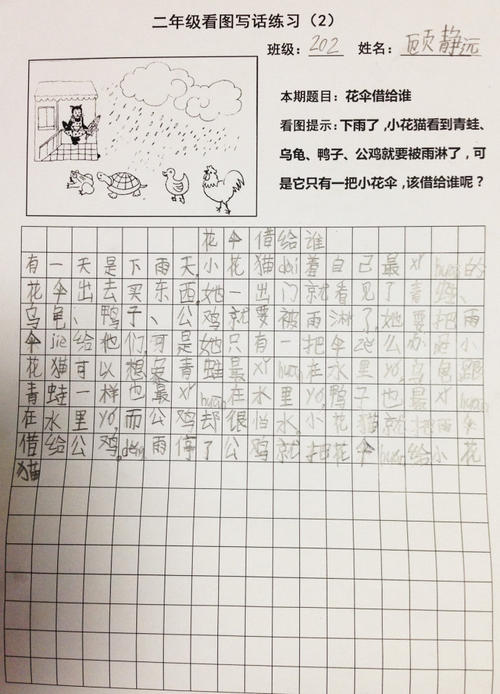 二年级看图写话练习（2）
班级：202 姓名：顾静远
本期题目：花伞借给谁
看图提示：下雨了，小花猫看到青蛙、
乌龟、鸭子、公鸡就要被雨淋了，可
是它只有一把小花伞，该借给谁呢？
花伞借给谁
有一天是下雨天，小花猫dài着自己最xǐhuan的
花伞出去买东西。她一出门就看见了青蛙、
乌龟、鸭子、公鸡就要被雨淋了，她要把雨
伞jiè给他们，可是她只有一把伞怎么办呢小
花猫可以想，青蛙最xǐhuan在水里yó，乌龟跟
青蛙一样也最xǐhuan在水里yó，鸭子也最xǐhuan
在水里yó，而公鸡却很怕水。小花猫就把雨伞
借给公鸡，děng雨停了公鸡就把花伞huán给小花
猫